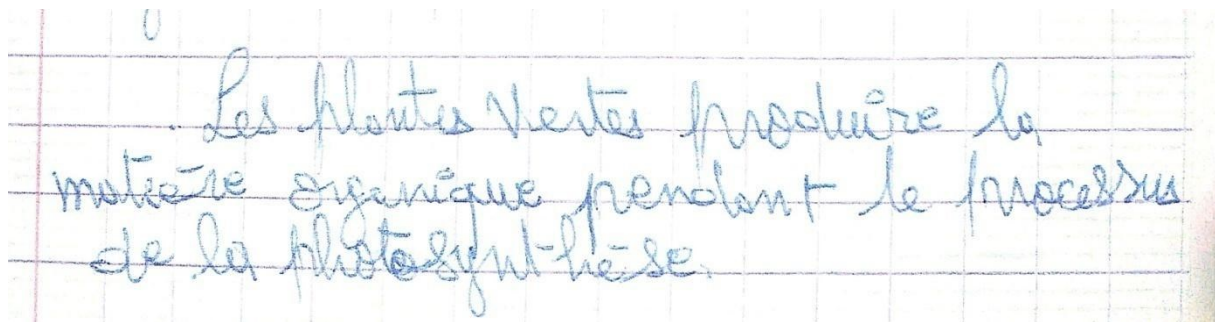 . Les plantes vertes produire la
matière organique pendant le processus
de la photosynthèse.